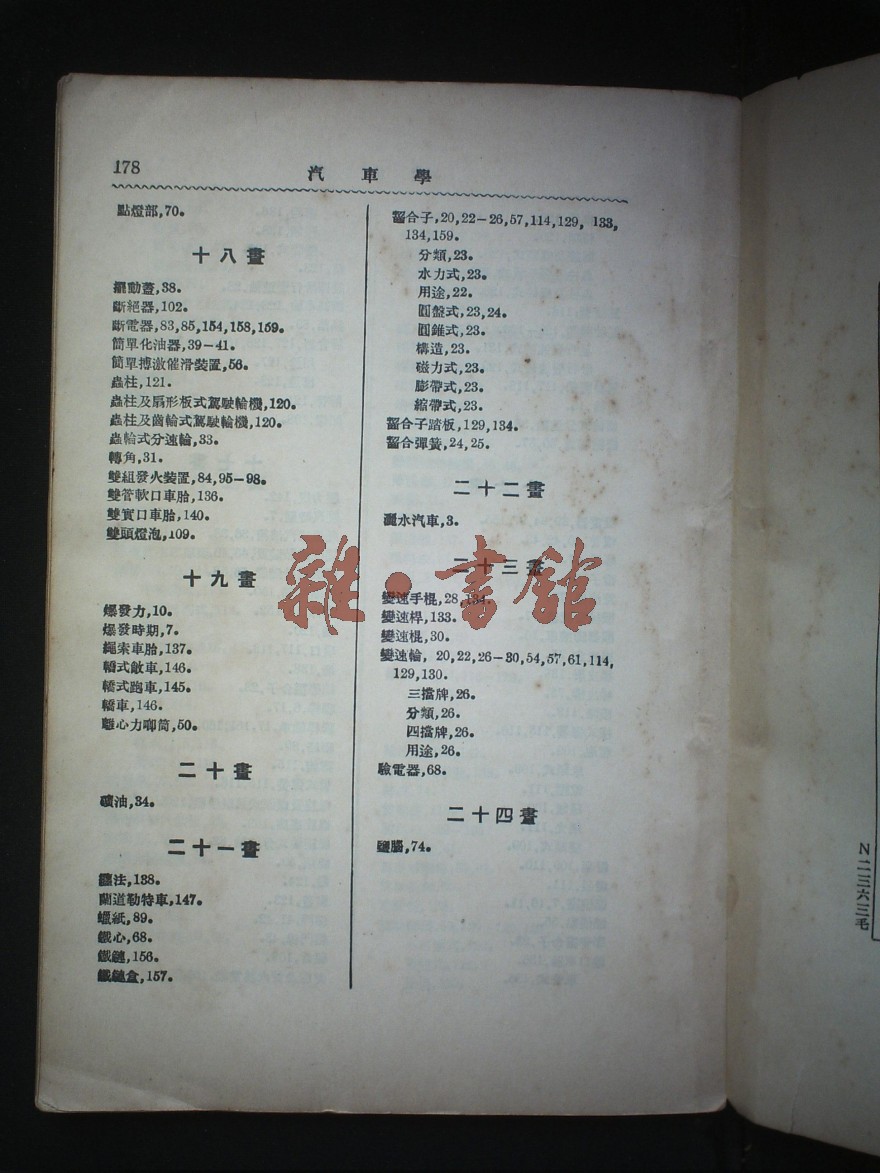 178
汽車學
點燈部,70。
十八畫
擺動蓋,38。
斷絕器,102。
斷電器,83,85,154,158,159。
簡單化油器,39-41。
簡單搏激催滑裝置,56。
蟲柱,121。
蟲柱及扇形板式駕駛輪機,120。
蟲柱及齒輪式駕駛輪機,120。
蟲輪式分速輪,33。
轉角,31。
雙組發火裝置,84,95-98。
雙管軟口車胎,136。
雙實口車胎,140。
雙頭燈泡,109。
十九畫
爆發力,10。
爆發時期,7。
繩索車胎,137。
轎式敞車,146。
轎式跑車,145。
轎車,146。
離心力唧筒,50。
二十畫
礦油,34。
二十一畫
纏法,138。
蘭道勒特車,147。
蠟紙,89。
鐵心,68。
鐵鏈,156。
鐵鏈盒,157。
齧合子,20,22-26,57,114,129, 133,
134,159。
分類,23。
水力式,23。
用途,22。
圓盤式,23,24。
圓錐式,23。
構造,23。
磁力式,23。
膨帶式,23。
縮帶式,23。
齧合子踏板,129,134。
齧合彈簧,24,25。
二十二畫
灑水汽車,3。
二十三畫
變速手棍,28,134。
變速桿,133。
變速棍,30。
變速輪, 20,22,26-30,54,57,61,114,
129,130。
三擋牌,26。
分類,26。
四擋牌,26。
用途,26。
驗電器,68。
二十四畫
鹽腦,74。
雜·書舘
N二三六三毛